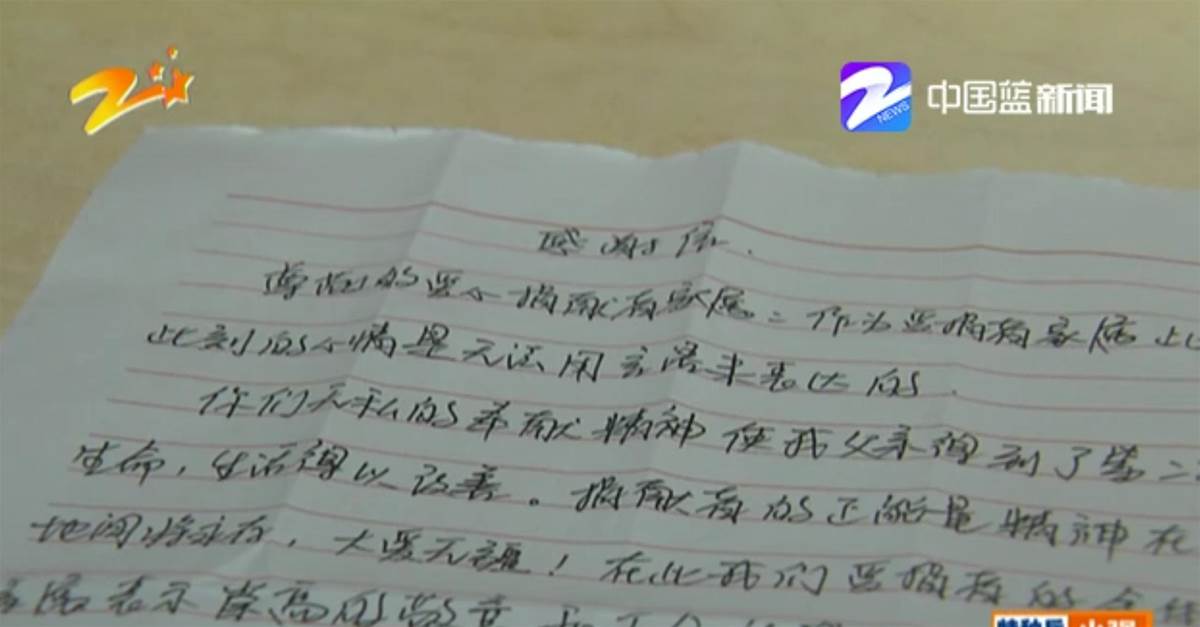 中国蓝新闻
NEWS
感谢信.
尊敬的受心捐献者家属：作为受捐者家属此
此刻的心情是无法用言语来表达的.
你们无私的奉献精神使我父亲得到了第二
生命，生活得以改善。捐献者的正能量精神在
地间将永存，大爱无疆！在此我们受捐者的全体
家属表示崇高的敬意